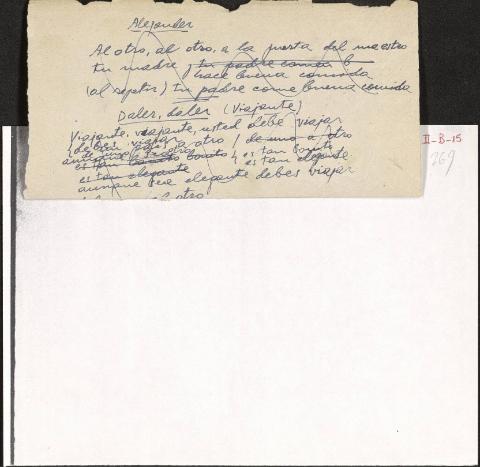 Alejander
Al otro, al otro, a la puerta del maestro
tu madre y tu padre comen b
hace buena comida
(al repetir) tu padre come buena comida
Daler, daler (Viajante)
Viajante, viajante, usted debe viajar
debes viajar
de uno a otro / de uno a otro
es tan bonito
es tan elegante
es tan elegante
aunque sea elegante debes viajar
otro
II-B-15
269